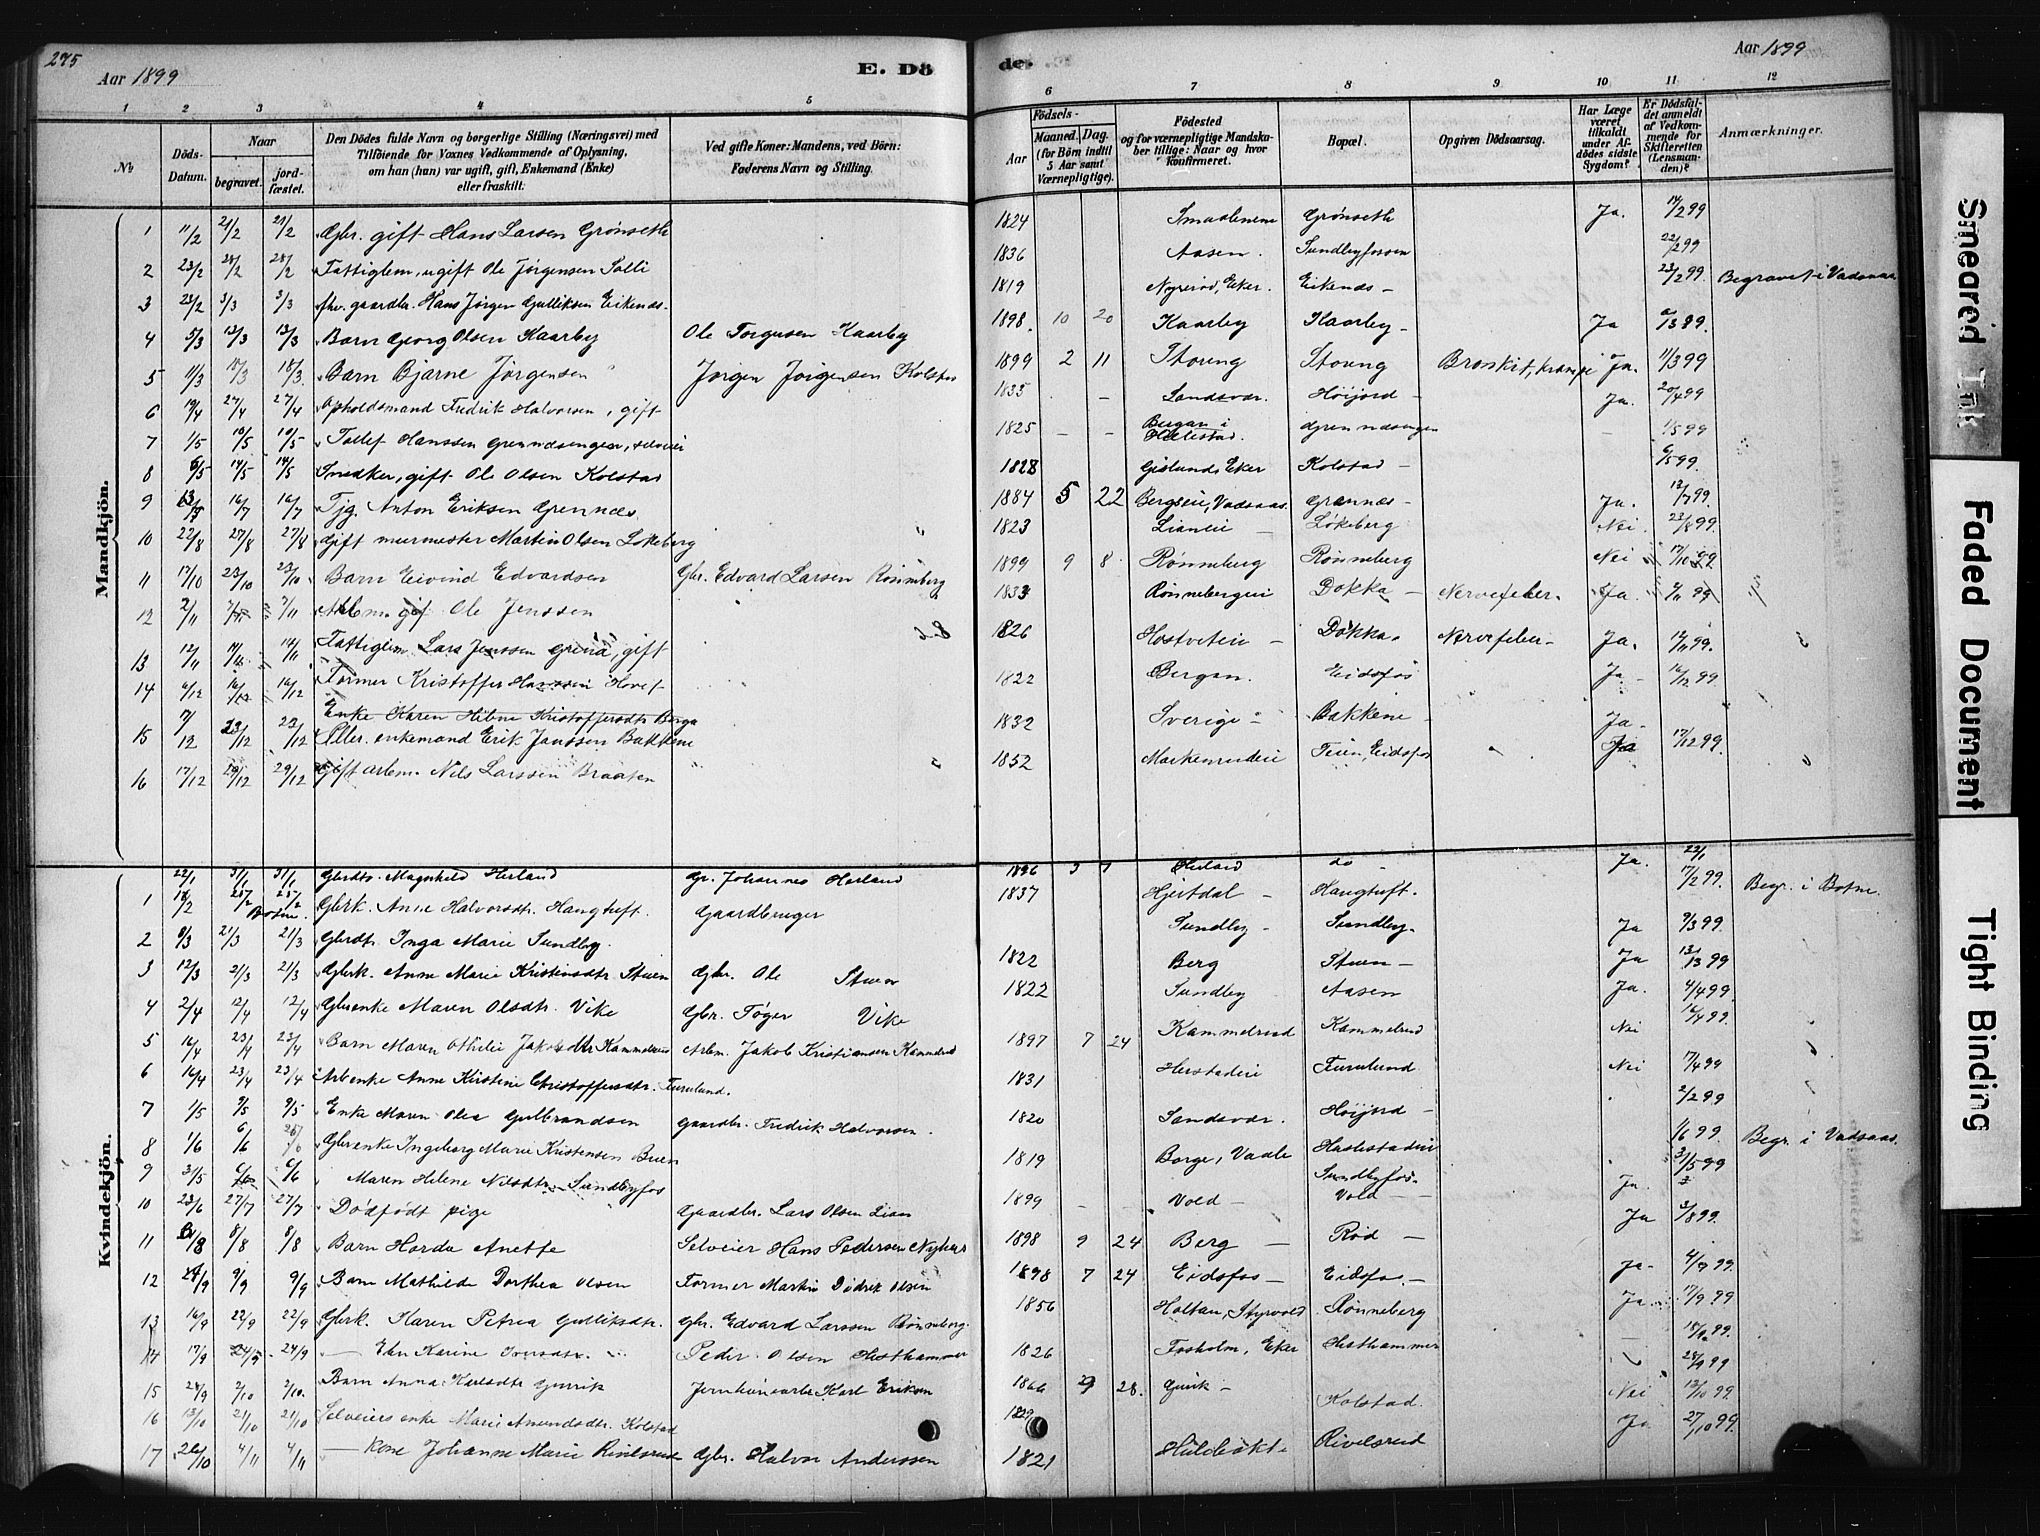 275
Aar 1899
E. Dö
de.
Aar 1899
1 2 3 4 5 6 7 8 9 10 11 12
No
Döds-Datum.
Naar
begravet.
jordfæstet.
Den Dödes fulde Navn og borgerlige Stilling (Næringsvei) med
Tilföiende for Voxnes Vedkommende af Oplysning,
om han (hun) var ugift, gift, Enkemand (Enke)
eller fraskilt:
Ved gifte Koner: Mandens, ved Börn:
Faderens Navn og Stilling.
Födsels-
Aar
Maaned. Dag.
(for Börn indtil
5 Aar samt
Værnepligtige).
Födested
og for værnepligtige Mandska-
ber tillige: Naar og hvor
konfirmeret.
Bopæl.
Opgiven Dödsaarsag.
Har Læge
været
tilkaldt
under Af-
dödes sidste
Sygdom?
Er Dödsfal-
det anmeldt
af Vedkom-
mende for
Skifteretten
(Lensman-
den)?
Anmærkninger.
Mandkjön.
1 11/2 21/2 21/2 Gbr. gift Hans Larsen Grønseth 1824 Smaalenene Grønseth Ja. 14/2 99
2 23/2 28/2 28/2 Fattiglem, ugift Ole Jørgensen Solli 1836 Aasen. Sundbyfossen 22/2 99
3 23/2 3/3 3/3 fhv. gaardbr. Hans Jørgen Gulliksen Eikenes. 1819 Nyrerød, Eker. Eikenæs - 23/2 99. Begravet i Vadsaas
4 5/3 13/3 13/3 Barn Georg Olsen Kaarby Ole Torgersen Kaarby 1898 10 20 Kaarby Kaarby - Ja /3 99.
5 11/3 18/3 18/3. Barn Bjarne Jørgensen Jørgen Jørgensen Kolstad 1899 2 11 Storeng Storeng Bronkit, krampe Ja. 11/3 99
6 19/4 27/4 27/4 Opholdsmand Fredrik Halvorsen, gift 1835 Sandsvær. Høijord - Ja. 20/4 99
7 1/5 10/5 10/5 Tollef Hanssen Grenndsengen, selveier 1825 Bergan i Hillestad. Grenndsengen 1/5 99
8 6/5 14/5 14/5 Snedker, gift Ole Olsen Kolstad 1828 Gislund, Eker Kolstad - 6/5 99.
9 13/5 16/7 16/7 Tjg. Anton Eriksen Grennæs. 1884 5 22 Bergseie, Vadsaas. Grennæs - Ja. 12/7 99.
10 22/8 27/8 27/8 Gift murmester Martin Olsen Løkeberg 1823 Lianeie - Løkeberg Nei. 23/8 99.
11 17/10 23/10 23/10 Barn Eivind Edvardsen Gbr. Edvard Larsen Rønneberg 1899 9 8 Rønneberg Rønneberg Nei 17/10 99
12 2/11 7/11 7/11 Arbm. gift Ole Jenssen 1833 Rønnebergeie Dokka - Nervefeber. Ja. /11 99
13 12/11 14/11 14/11 Fattiglem Lars Jenssen Grena, gift 1826 Hostveteie - Dokka. Nervefeber - Ja. 14/11 99.
14 6/12 16/12 16/12 Former Kristoffer Hanssen Hovet 1822 Bergan. Eidsfos Ja - 16/12 99.
Enke Karen Helene Kristoffersdtr. Berga
15 7/12 23/12 23/12 Pller. enkemand Erik Janssen Bakkene 1832 Sverige - Bakkene - Ja -
16 17/12 29/12 29/12 Gift arbm. Nils Larssen Braaten 1852 Markerudeie Teien, Eidsfos Ja 17/12 99.
Kvindekjön.
22/1 31/1 31/1 Gbrdtr. Magnhild Herland Gr. Johannes Herland 1896 3 7 Herland do - Ja. 23/1
1 12/2 25/2 25/2 Botne. Gbrk. Anne Halvorsdtr. Haugtuft. Gaardbruger 1837 Hjertdal - Haugtuft. 17/2 99. Begr. i Botne.
2 9/3 21/3 21/3 Gbrdtr. Inga Marie Sundby. Sundby - Sundby. Ja 9/3 99.
3 12/3 21/3 21/3 Gbrk. Anne Marie Kristinsdtr. Stuen Gbr. Ole Stuen 1822 Berg Stuen - Ja 13/3 99
4 2/4 12/4 12/4 Gbrenke Maren Olsdtr. Vike Gbr. Tøger Vike 1822 Sundby Aasen Ja. 4/4 99.
5 16/4 23/4 23/4 Barn Maren Othilie Jakobsdtr Kammelrud Arbm. Jakob Kristiansen Kammelrud 1897 7 24 Kammelrud Kammelrud Nei 16/4 99.
6 16/4 23/4 23/4 Arb enke Anne Kirstine Christoffersdtr. Furulund. 1831 Herstadeie Furulund. Nei 17/4 99
7 1/5 9/5 9/5 Enke Maren Olea Gulbrandsen Gaardbr. Fredrik Halvorsen. 1820 Sandsvær. Høijord - 2/2 99
8 1/6 6/6 Gbrenke Ingeborg Marie Kristensen Buen 1819 Borge, Vaale Haslestadeie 1/6 99. Begr. i Vadsaas.
9 31/5 6/6 6/6 Maren Helene Nilsdtr. Sundbyfos Sundbyfos. Ja. 31/5 99
10 23/6 27/7 27/7 Dødfødt pige Gaardbr. Lars Olsen Lian 1899 Vold - Vold -
11 /8 8/8 8/8 Barn Horda Anette Selveier Hans Pedersen Nyhus 1898 9 24 Berg - Rød - Ja 3/8 99.
12 /9 9/9 9/9 Barn Mathilde Dorthea Olsen Former Martin Didrik Olsen 1898 7 24 Eidsfos - Eidsfos. - Ja - 4/9 99.
13 16/9 22/9 22/9 Gbrk. Karen Petrea Gulliksdtr. Gbr. Edvard Larssen Rønneberg. 1856 Holtan, Styrvold Rønneberg Ja. 17/9 99
14 17/9 24/9 24/9 — Elen Karine Iversdtr. Peder Olsen Hesthammer 1826 Fosholm, Eker Hesthammer - 18/9 99.
15 28/9 2/10 2/10. Barn Anna Karlsdtr Gunrik Jernbanearb. Karl Eriksen 1866 9 28. Gurik - 28/9 99
16 13/10 21/10 21/10 Selveiers enke Marie Amundsdtr. Kolstad 1829 Kolstad. Nei 13/10 99.
17 26/10 4/11 4/11 — kone Johanne Marie Rivelsrud Gbr. Halvor Anderssen 1821 Hildebakk. Rivelsrud Ja 27/10 99.
Smeared Ink
Faded Document
Tight Binding